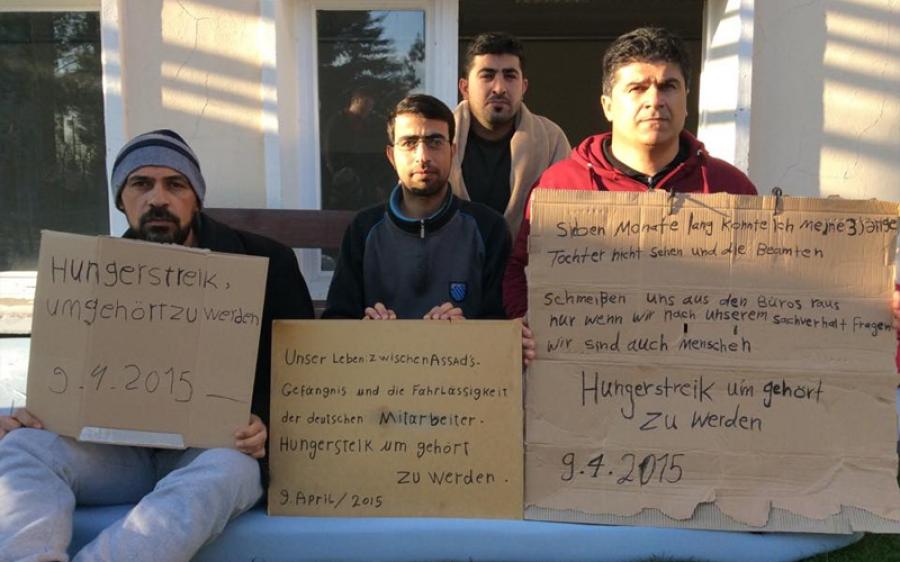 Hungerstreik,
umgehört zu werden
9.4.2015
Unser Leben: zwischen Assad's.
Gefängnis und die Fahrlässigkeit
der deutschen Mitarbeiter.
Hungersteik um gehört
zu werden.
9.April/2015
Sieben Monate lang konnte ich meine 3 järige
Tochter nicht sehen und die Beamten
schmeißen uns aus den Büros raus
nur wenn wir nach unserem sachverhalt fragen
wir sind auch menschen
Hungerstreik um gehört
zu werden
9.4.2015